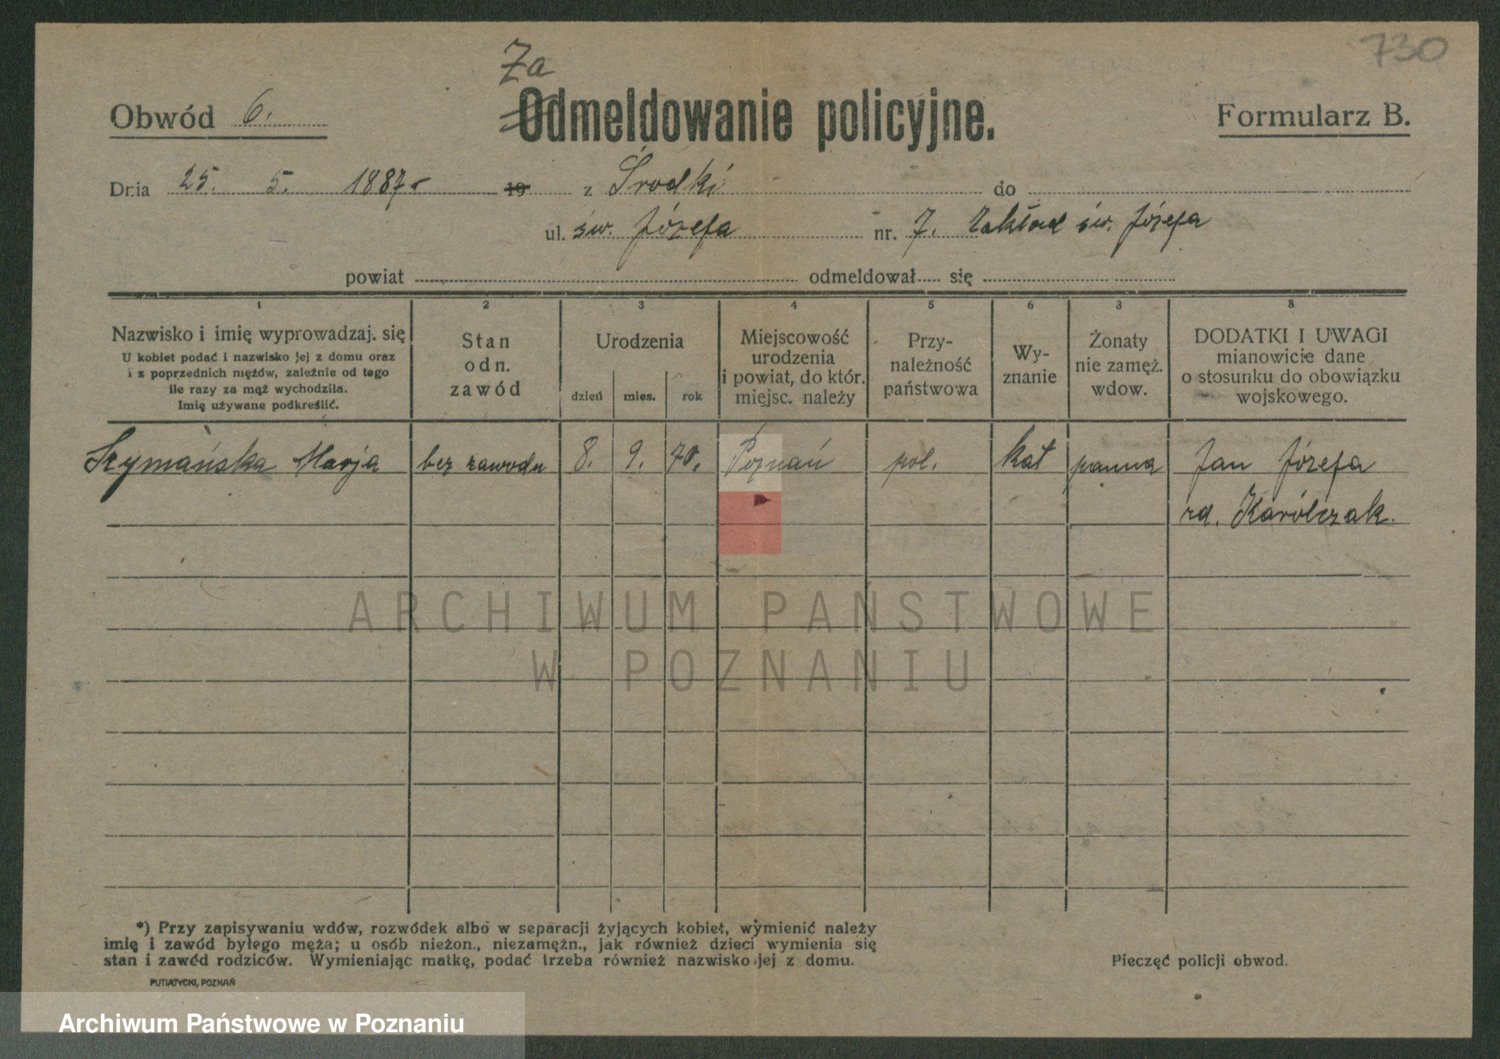 730
Za
Obwód 6. Odmeldowanie policyjne. Formularz B.
Dnia 25. 5. 1887 19 z Środki do
ul. św. Józefa nr. 7. Zakład św. Józefa
powiat odmeldował się
1 2 3 4 5 6 3 8
Nazwisko i imię wyprowadzaj. się
U kobiet podać i nazwisko jej z domu oraz
i z poprzednich mężów, zależnie od tego
ile razy za mąż wychodziła.
Imię używane podkreślić.
Stan
odn.
zawód
Urodzenia
dzień mies. rok
Miejscowość
urodzenia
i powiat, do któr.
miejsc. należy
Przy-
należność
państwowa
Wy-
znanie
Żonaty
nie zamęż.
wdow.
DODATKI I UWAGI
mianowicie dane
o stosunku do obowiązku
wojskowego.
Szymańska Marja bez zawodu 8. 9. 70. Poznań pol. kat panna Jan Józefa
rd. Karólczak.
ARCHIWUM PAŃSTWOWE
W POZNANIU
*) Przy zapisywaniu wdów, rozwódek albo w separacji żyjących kobiet, wymienić należy
imię i zawód byłego męża; u osób nieżon., niezamężn., jak również dzieci wymienia się
stan i zawód rodziców. Wymieniając matkę, podać trzeba również nazwisko jej z domu.
Pieczęć policji obwod.
PUTIATYCKI, POZNAŃ
Archiwum Państwowe w Poznaniu